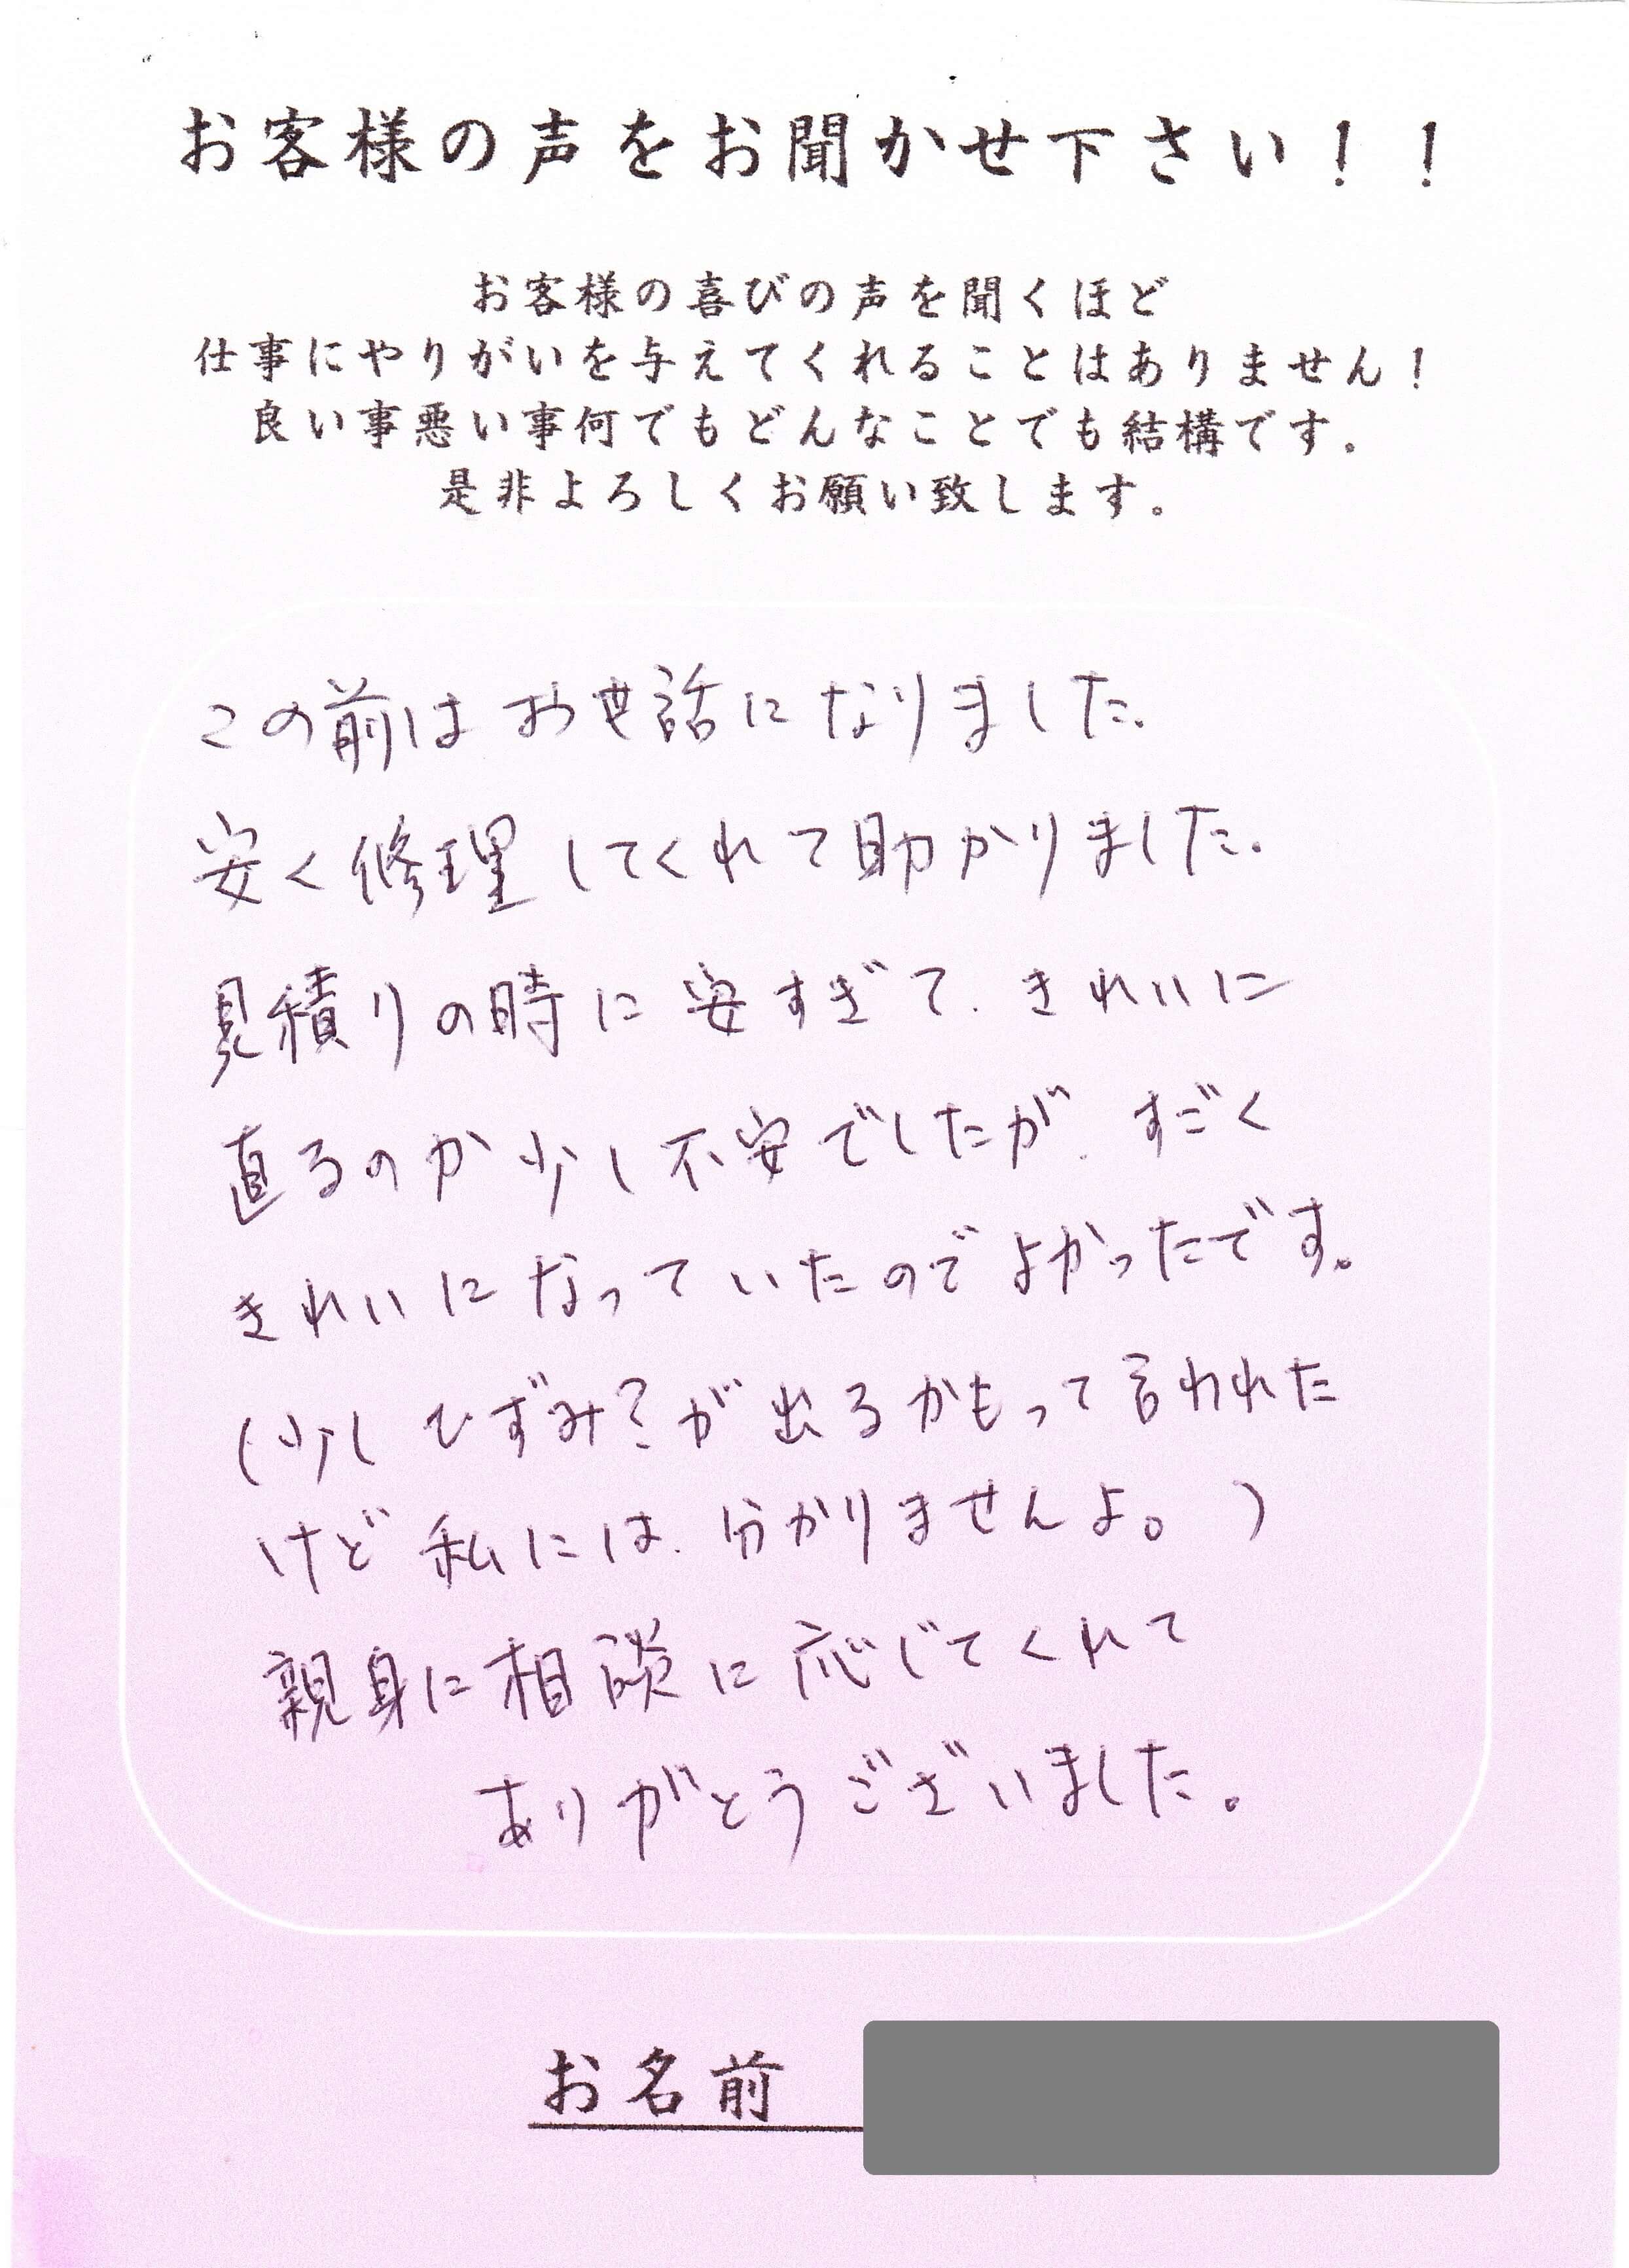 お客様の声をお聞かせ下さい！！
お客様の喜びの声を聞くほど
仕事にやりがいを与えてくれることはありません！
良い事悪い事何でもどんなことでも結構です。
是非よろしくお願い致します。
この前はお世話になりました.
安く修理してくれて助かりました.
見積りの時に安すぎて.きれいに
直るのか少し不安でしたが.すごく
きれいになっていたのでよかったです。
(少しひずみ?が出るかもって言われた
けど私には.分かりませんよ。)
親身に相談に応じてくれて
ありがとうございました。
お名前